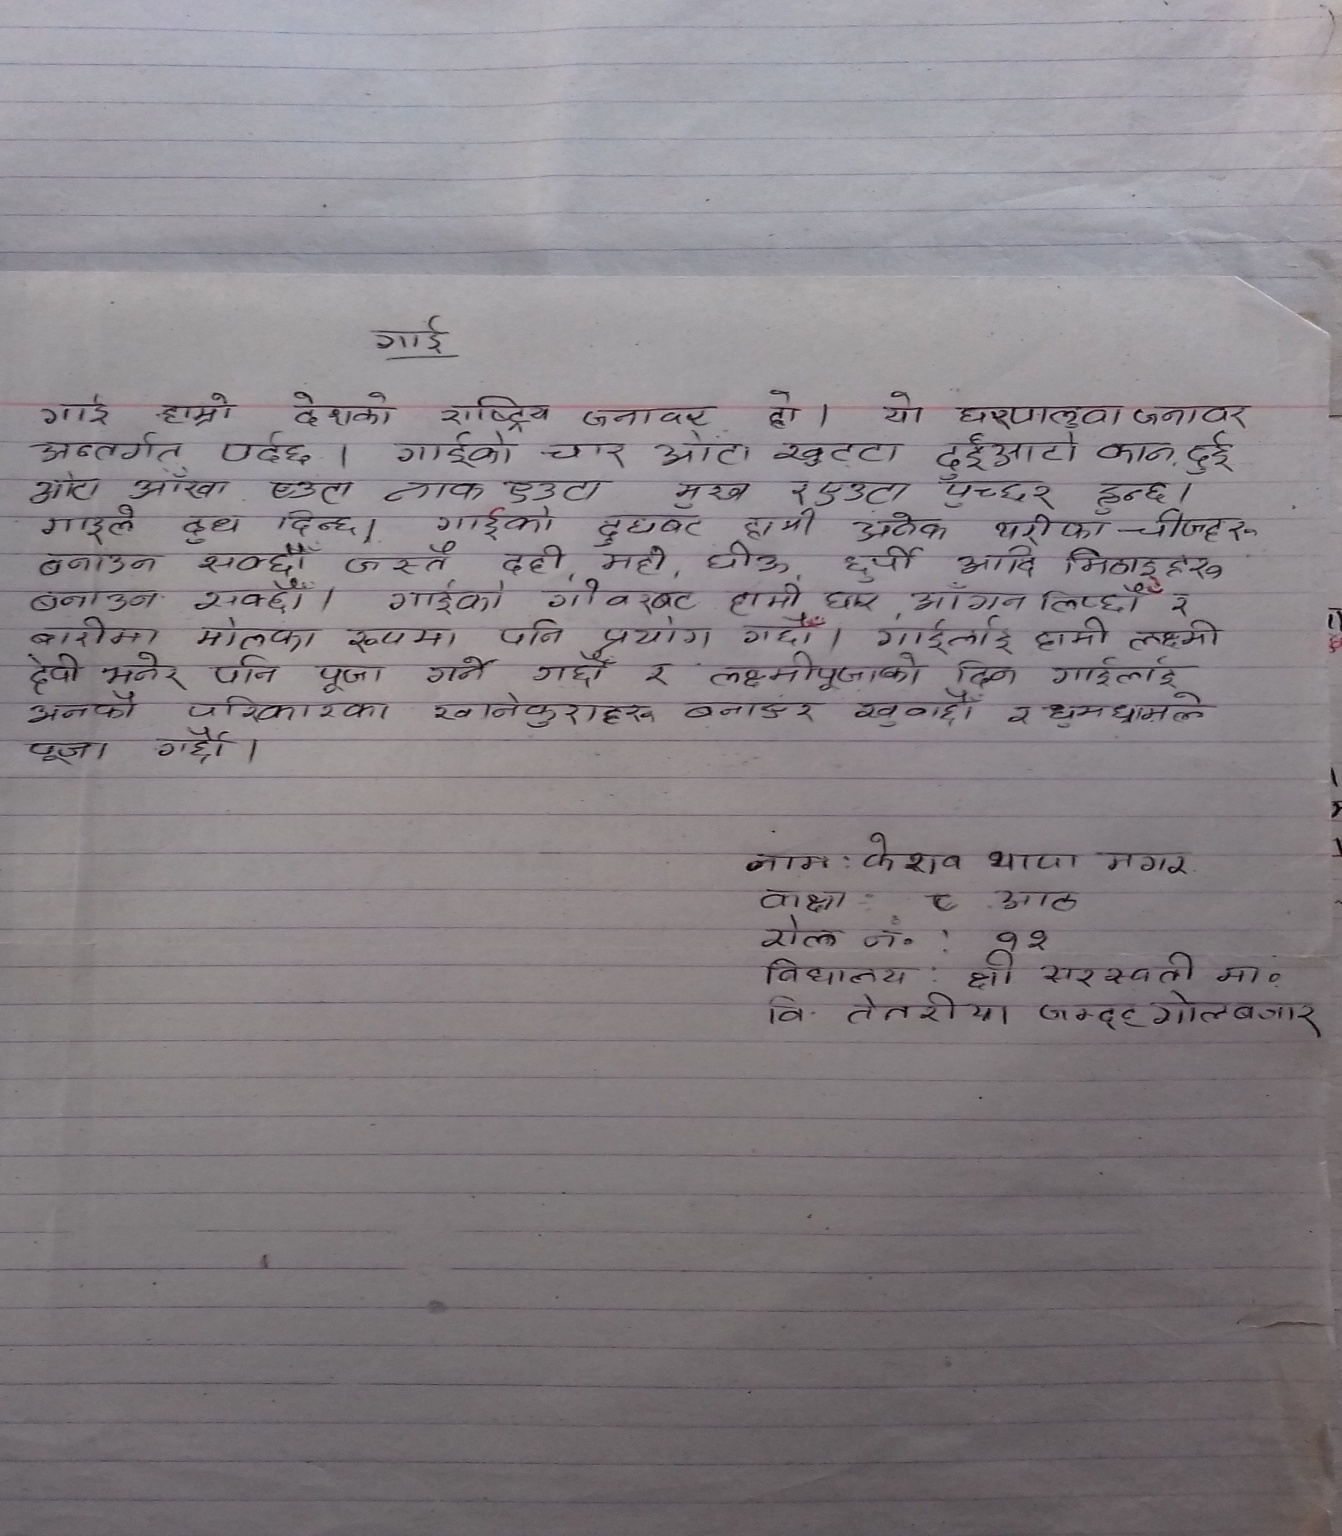 गाई
गाई हाम्रो देशको राष्ट्रिय जनावर हो । यो घरपालुवा जनावर
अन्तर्गत पर्दछ । गाईको चार ओटा खुट्टा दुईआटो कान, दुई
ओटा आँखा एउटा नाक एउटा मुख र एउटा पुच्छर हुन्छ।
गाइले दुध दिन्छ। गाईको दुधबट हामी अनेक थरीका चीजहरू
बनाउन सक्छौँ जस्तै दही, मही, घीऊ, छुर्पी आदि मिठाइहरू
बनाउन सक्दौँ। गाईको गोवरबट हामी घर आँगन लिप्छौँ र
बारीमा मोलका रूपमा पनि प्रयोग गर्दौँ। गाईलाई हामी लक्ष्मी
देवी भनेर पनि पूजा गर्ने गर्छौँ र लक्ष्मीपूजाको दिन गाईलाई
अनकौ परिकारका खानेकुराहरू बनाऊर खुवाछौँ र धुमधामले
पूजा गर्छौँ।
नाम: केशव थापा मगर
कक्षा: ८ आठ
रोल नं. : १२
विधालय : क्षी सरस्वती मा.
वि. तेतरीया जम्दह गोलबजार